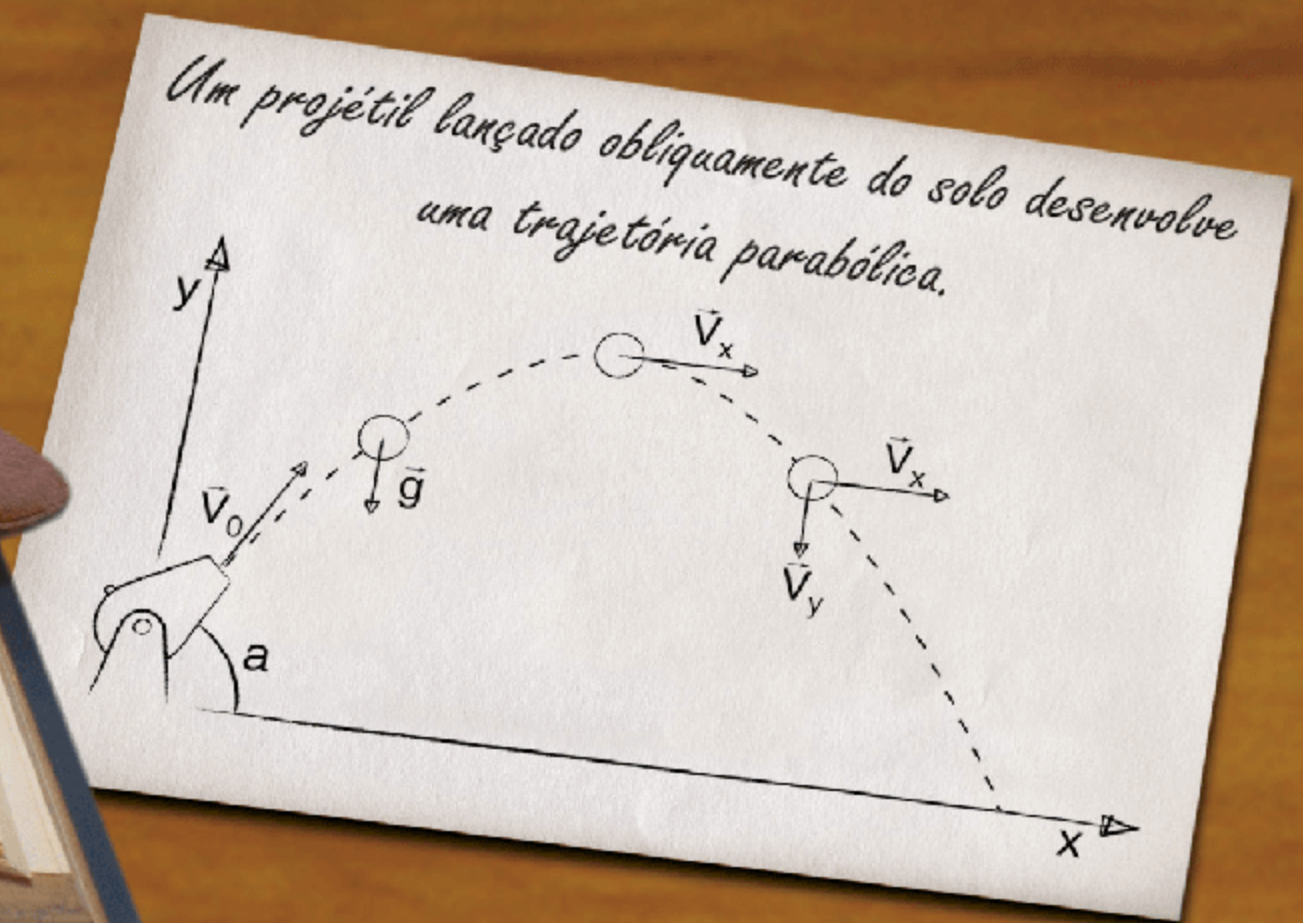 Um projétil lançado obliquamente do solo desenvolve
uma trajetória parabólica.
y
V⃗x
V⃗x
g⃗
V⃗0
V⃗y
a
x